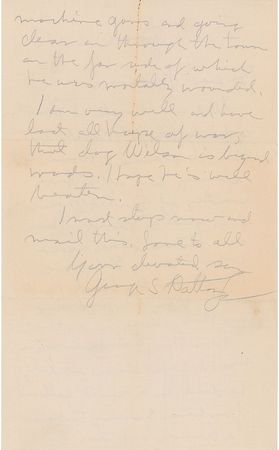 machine guns and going
clear on through the town
on the far side of which
he was mortally wounded.
I am very well and have
lost all hope of war,
that dog Wilson is beyond
words. I hope he is well
beaten.
I must stop now and
mail this. Love to all
Your devoted son
George S Patton Jr